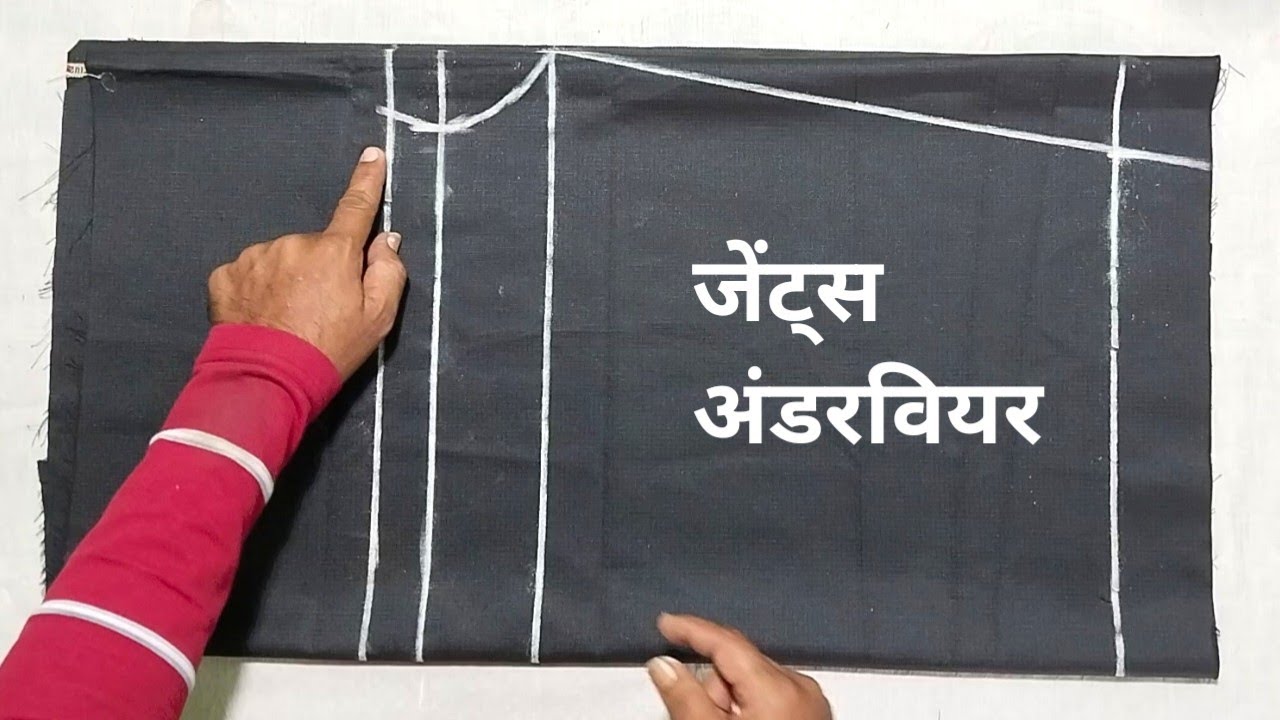 जेंट्स
अंडरवियर